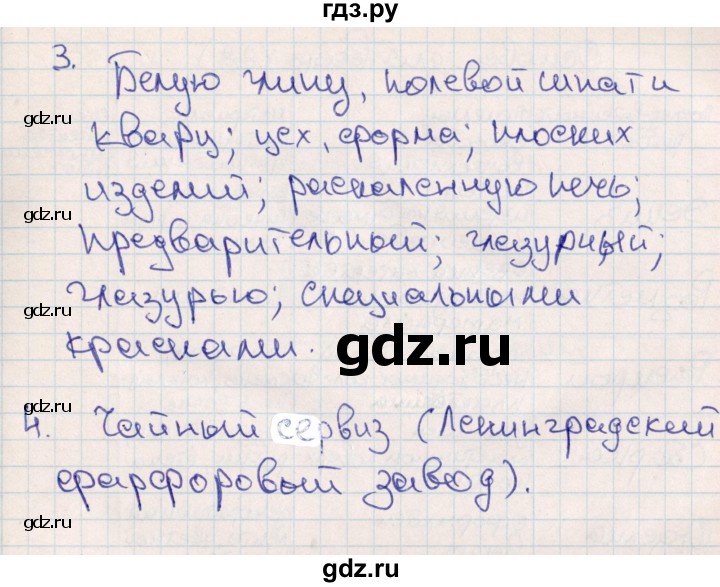 гдз.ру
3. Белую глину, полевой шпат и
gdz.ru
кварц; цех, форма; плоских
изделий; раскаленную печь;
gdz.ru
gdz.ru
предварительный; глазурный;
gdz.ru
глазурью; специальными
красками.
gdz.ru
gdz.ru
gdz.ru
4. Чайный сервиз (Ленинградский
фарфоровый завод).
gdz.ru
gdz.ru
gdz.ru
gdz.ru